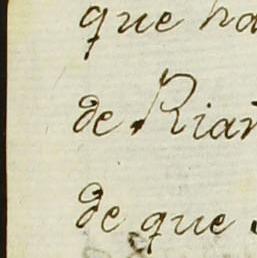 que ha
de Rian
de que